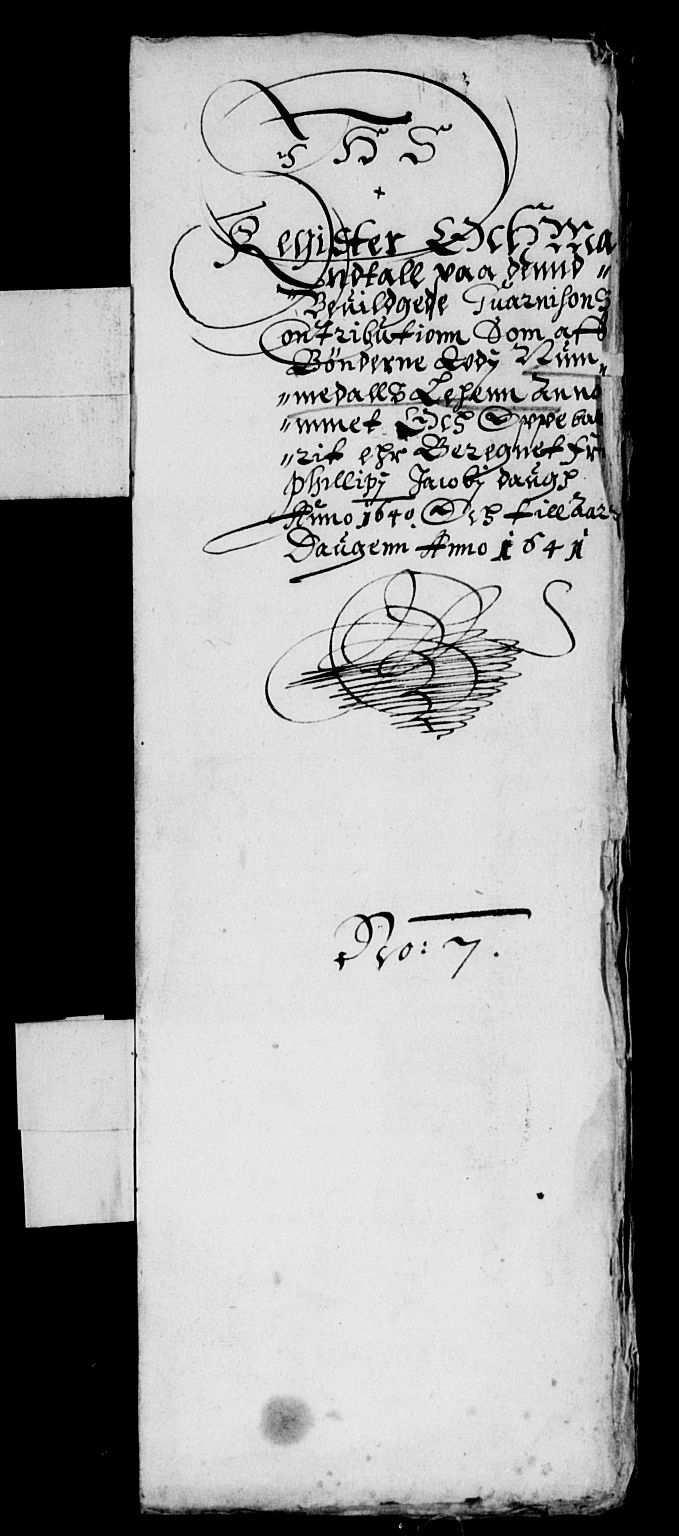 J H S
+
Register Och Ma
ndtall paa dennd "
"Beuildgede Guarnisons
ontributionn Som aff
Bönderne Udj Num"
"medalls Lehenn Anno
"mmet Och Oppebaa
"rit ehr Beregnet fr
Phillipj Jacobj daugh
Anno 1640. Och till Aar
Daugenn Anno 1641
No: 7.